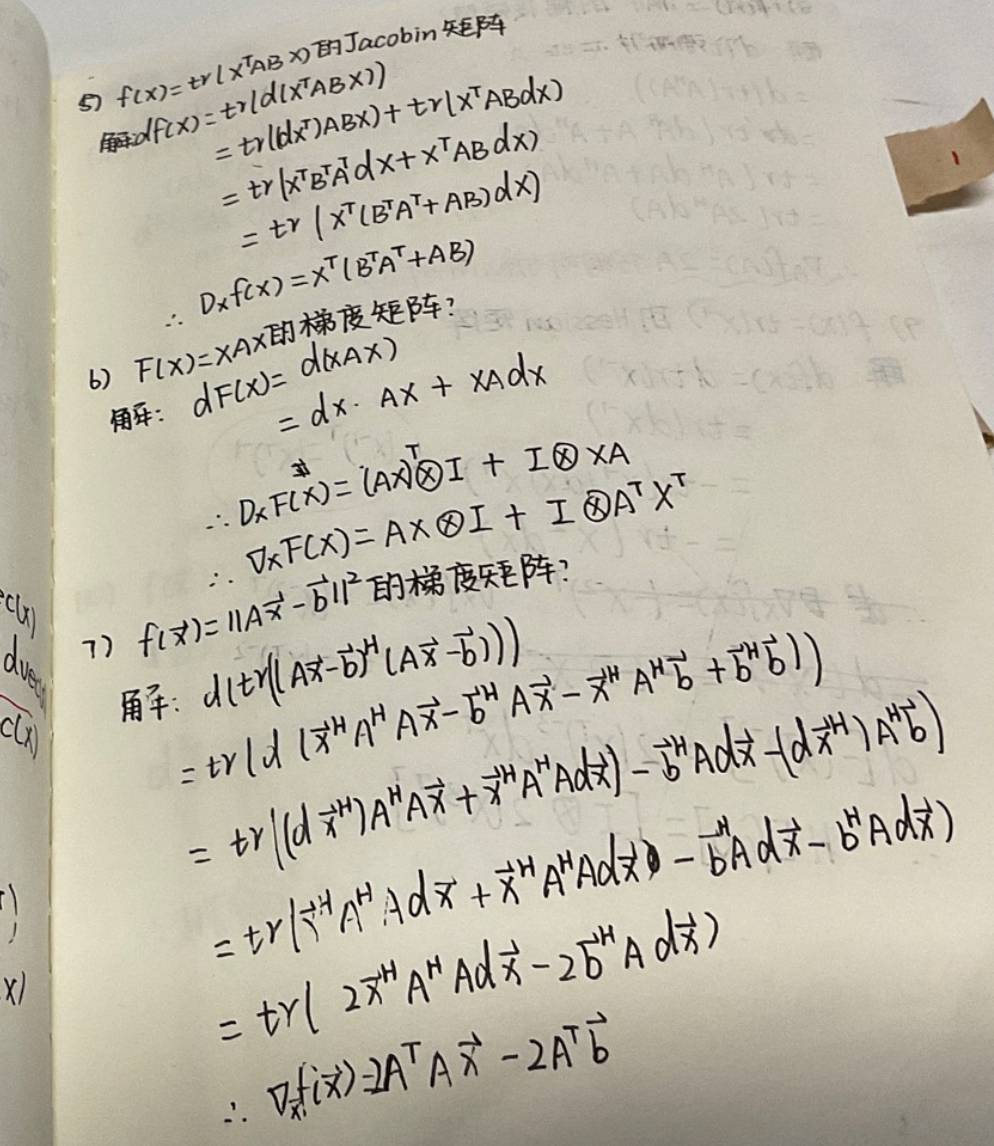 5) f(x)=tr(xᵀABx)的Jacobin矩阵
解:df(x)=tr(d(xᵀABx))
=tr(dxᵀ)ABx)+tr(xᵀABdx)
=tr(xᵀBᵀAᵀdx+xᵀABdx)
=tr(xᵀ(BᵀAᵀ+AB)dx)
∴ Dₓf(x)=xᵀ(BᵀAᵀ+AB)
6) F(x)=xAx的梯度矩阵?
解: dF(x)= d(xAx)
= dx· Ax + xAdx
∴ DₓF(x)=(Ax)ᵀ⊗I + I⊗xA
∴ ∇ₓF(x)=Ax⊗I + I⊗AᵀXᵀ
7) f(x⃗)=||Ax⃗-b⃗||²的梯度矩阵?
解: d(tr((Ax⃗-b⃗)ᴴ(Ax⃗-b⃗)))
=tr(d(x⃗ᴴAᴴAx⃗-b⃗ᴴAx⃗-x⃗ᴴAᴴb⃗+b⃗ᴴb⃗))
= tr((dx⃗ᴴ)AᴴAx⃗+x⃗ᴴAᴴAdx⃗)-b⃗ᴴAdx⃗-(dx⃗ᴴ)Aᴴb⃗)
=tr(x⃗ᴴAᴴAdx⃗+x⃗ᴴAᴴAdx⃗)-b⃗ᴴAdx⃗-bᴴAdx⃗)
=tr( 2x⃗ᴴAᴴAdx⃗-2b⃗ᴴAdx⃗)
∴ ∇ₓ⃗f(x⃗)=2AᵀAx⃗-2Aᵀb⃗
c(x)
c(x)
x)